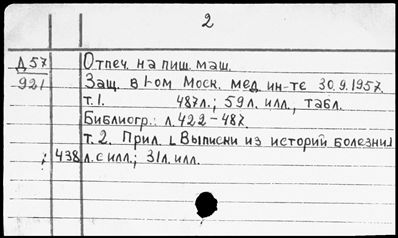 2
Д57
921
Отпеч. на пиш. маш.
Защ. в 1-ом Моск. мед. ин-те 30.9.1957.
т. 1. 487л.; 59л. илл., табл.
Библиогр.: л.422-487.
т. 2. Прил. [Выписки из историй болезни]
; 438 л. с илл.; 31л. илл.